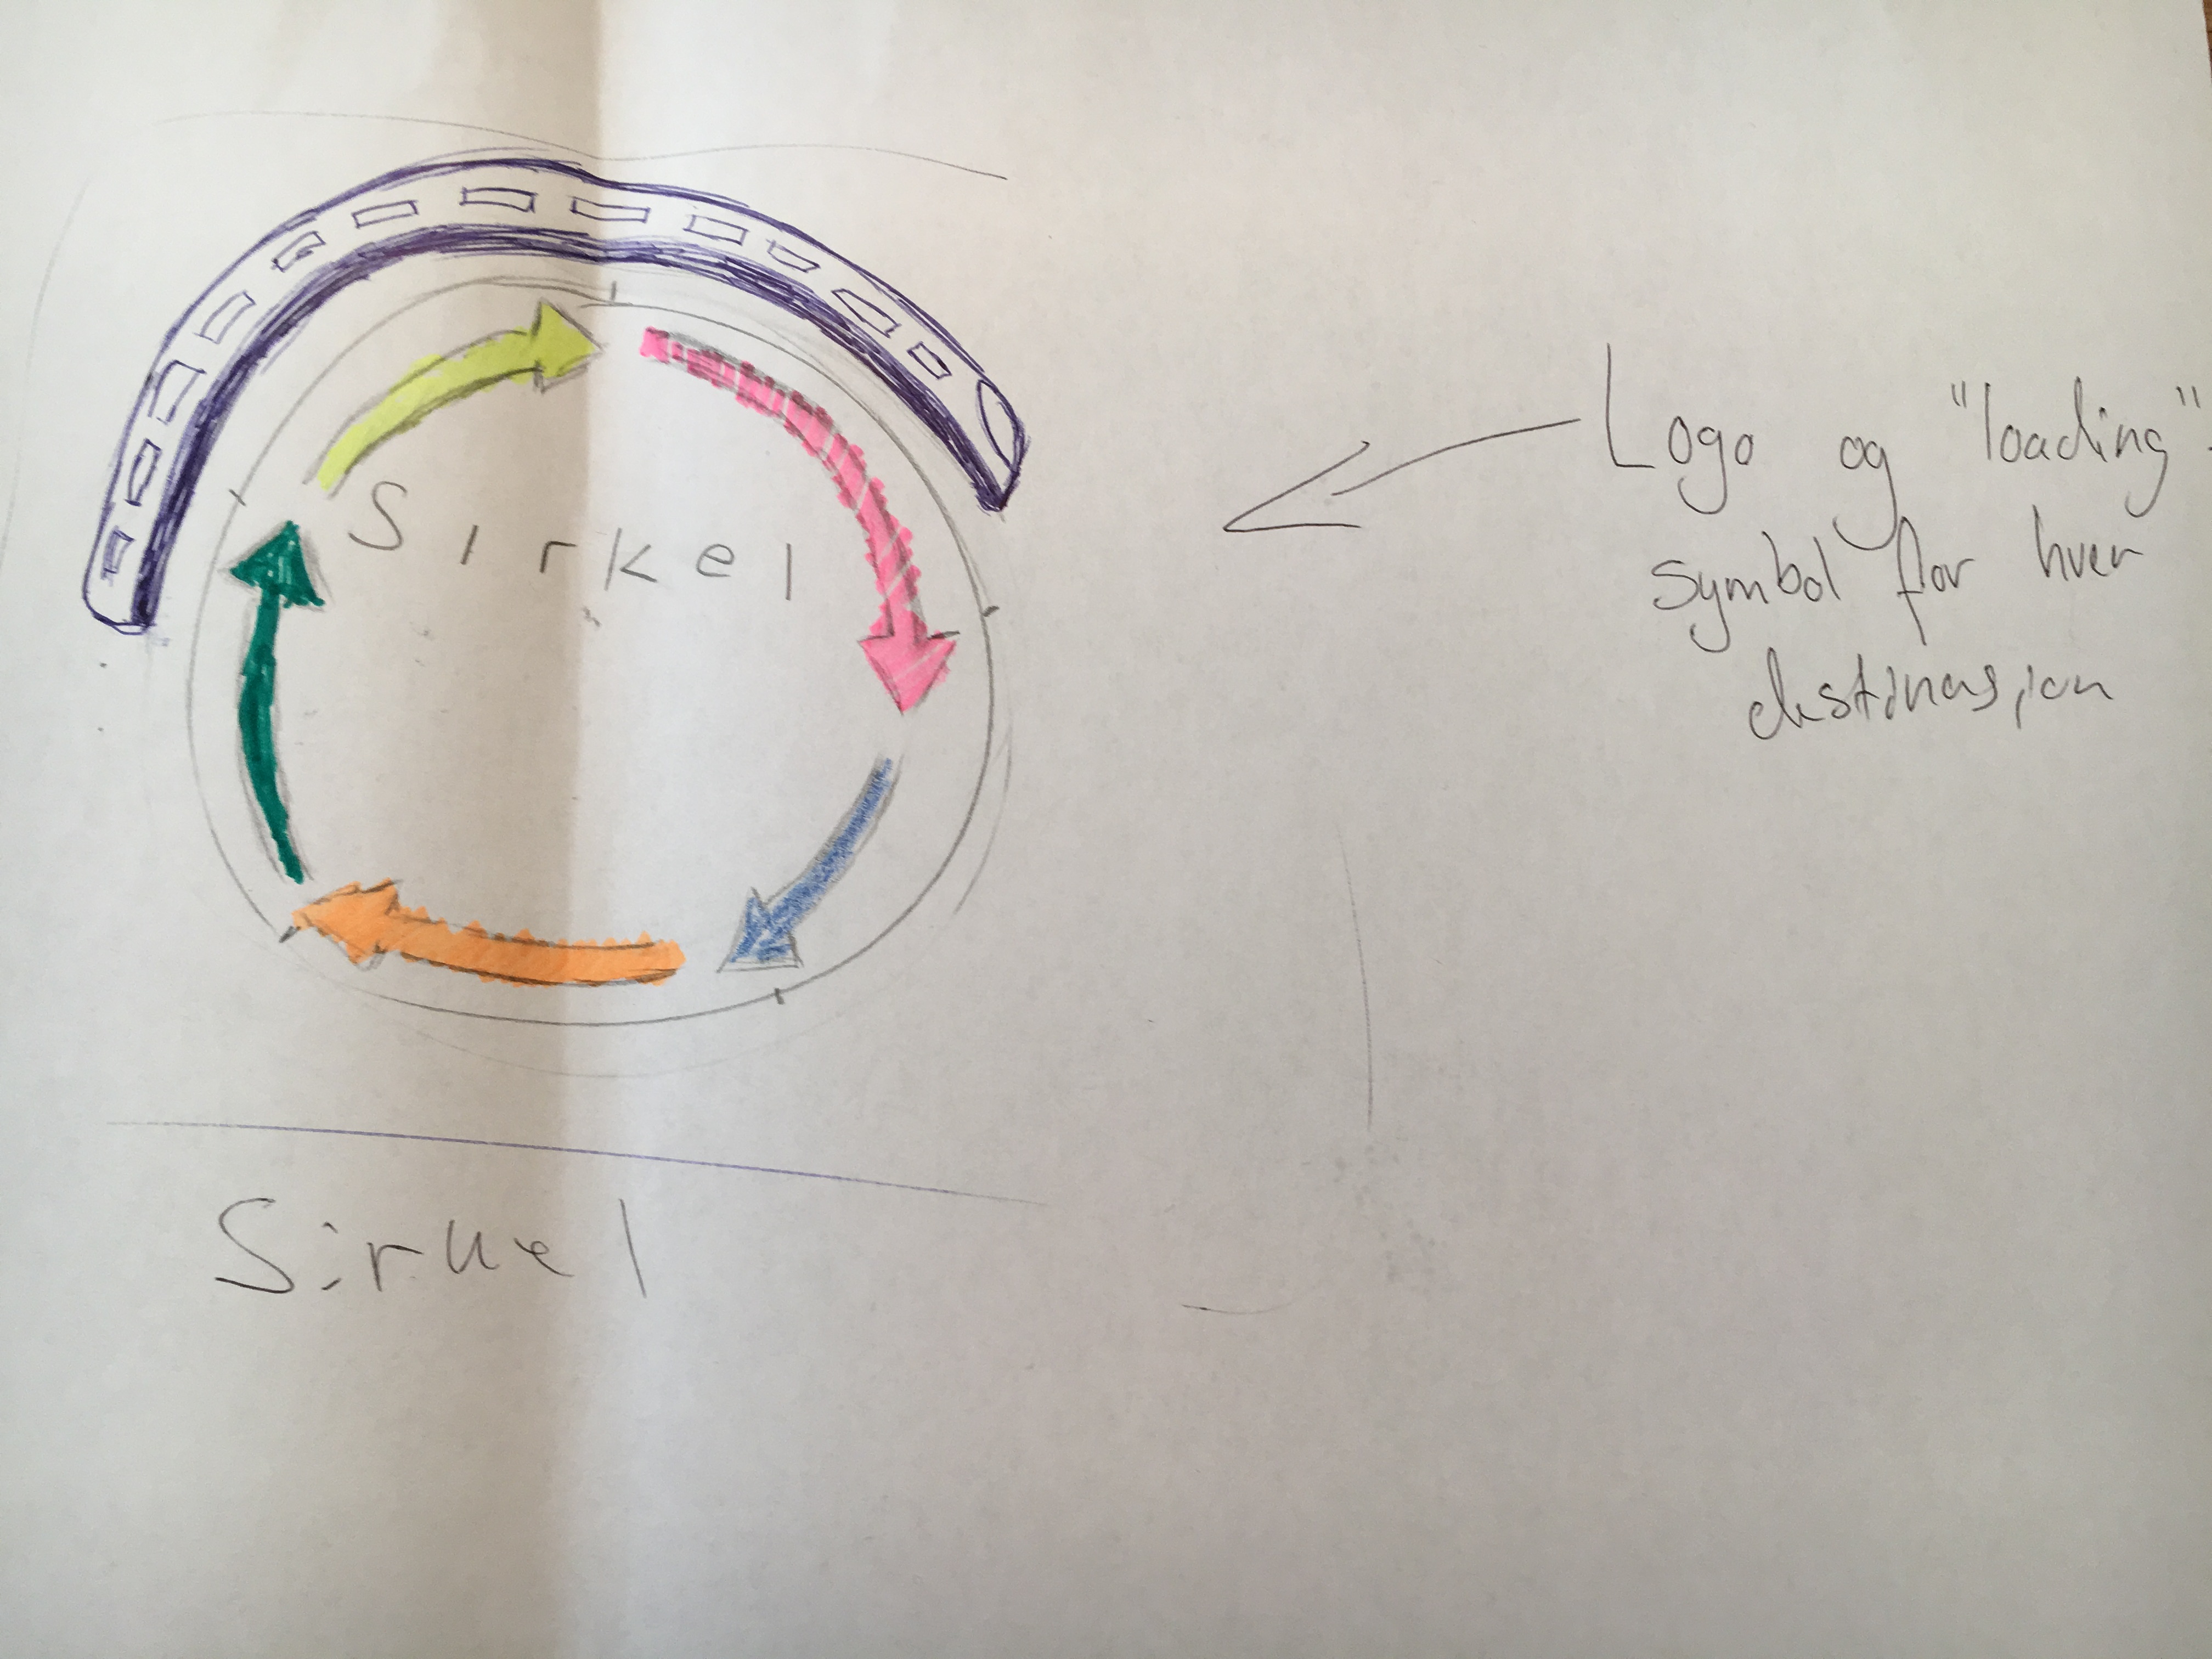 Sirkel
Logo og "loading"-
symbol for hver
destinasjon
Sirkel